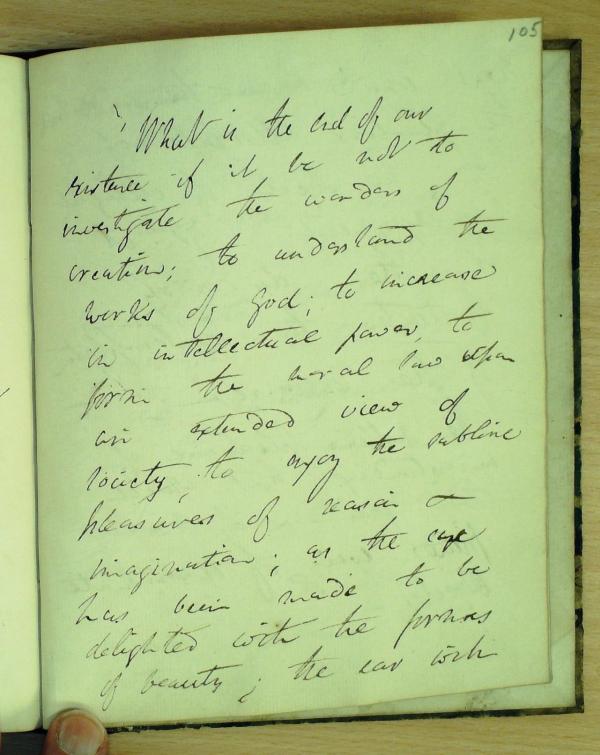 105
' What is the end of our
existence if it be not to
investigate the wonders of
creation; to understand the
works of God; to increase
in intellectual power, to
form the moral law upon
an extended view of
society; to enjoy the sublime
pleasures of reason &
imagination; as the eye
has been made to be
delighted with the forms
of beauty; the ear with